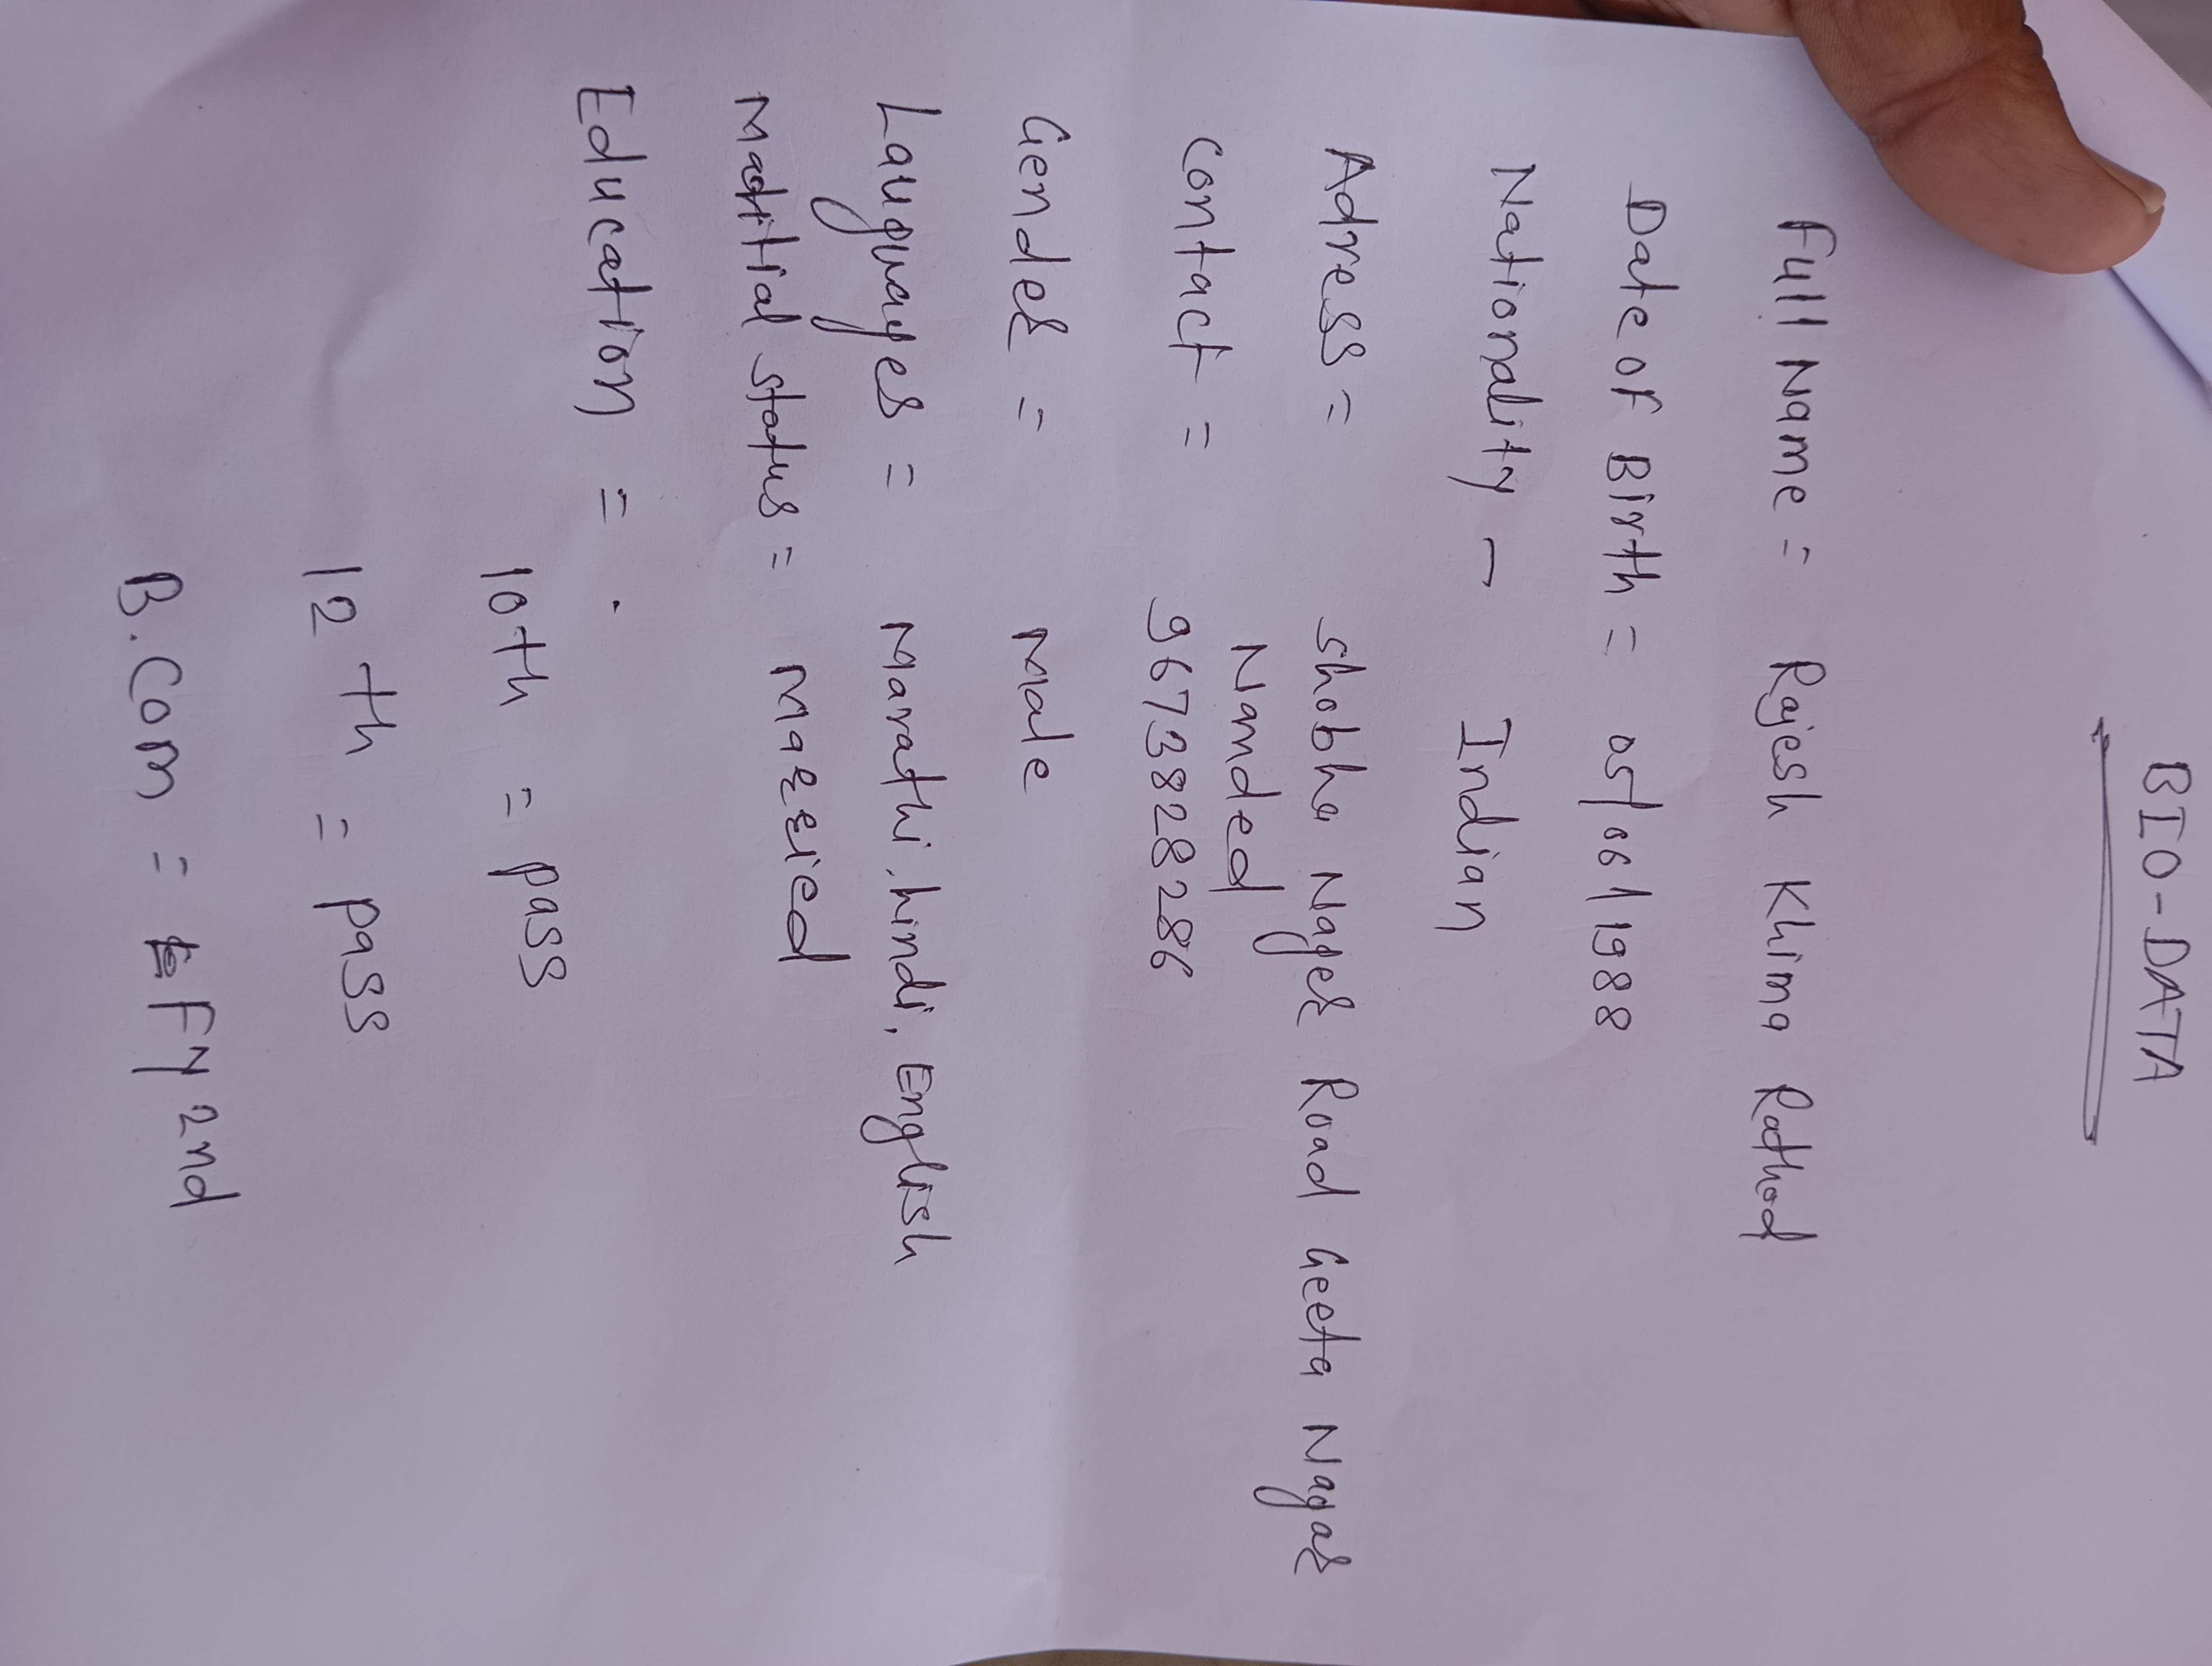 BIO-DATA
Full Name = Rajesh Khima Rathod
Date of Birth = 05/06/1988
Nationality - Indian
Adress = shobha Nager Road Geeta Nagar
Namded
Contact = 9673828286
Gender = Male
Lauguages = Marathi, hindi, English
Maritial status = Married
Education =
10th = pass
12th = pass
B.Com = FY 2nd